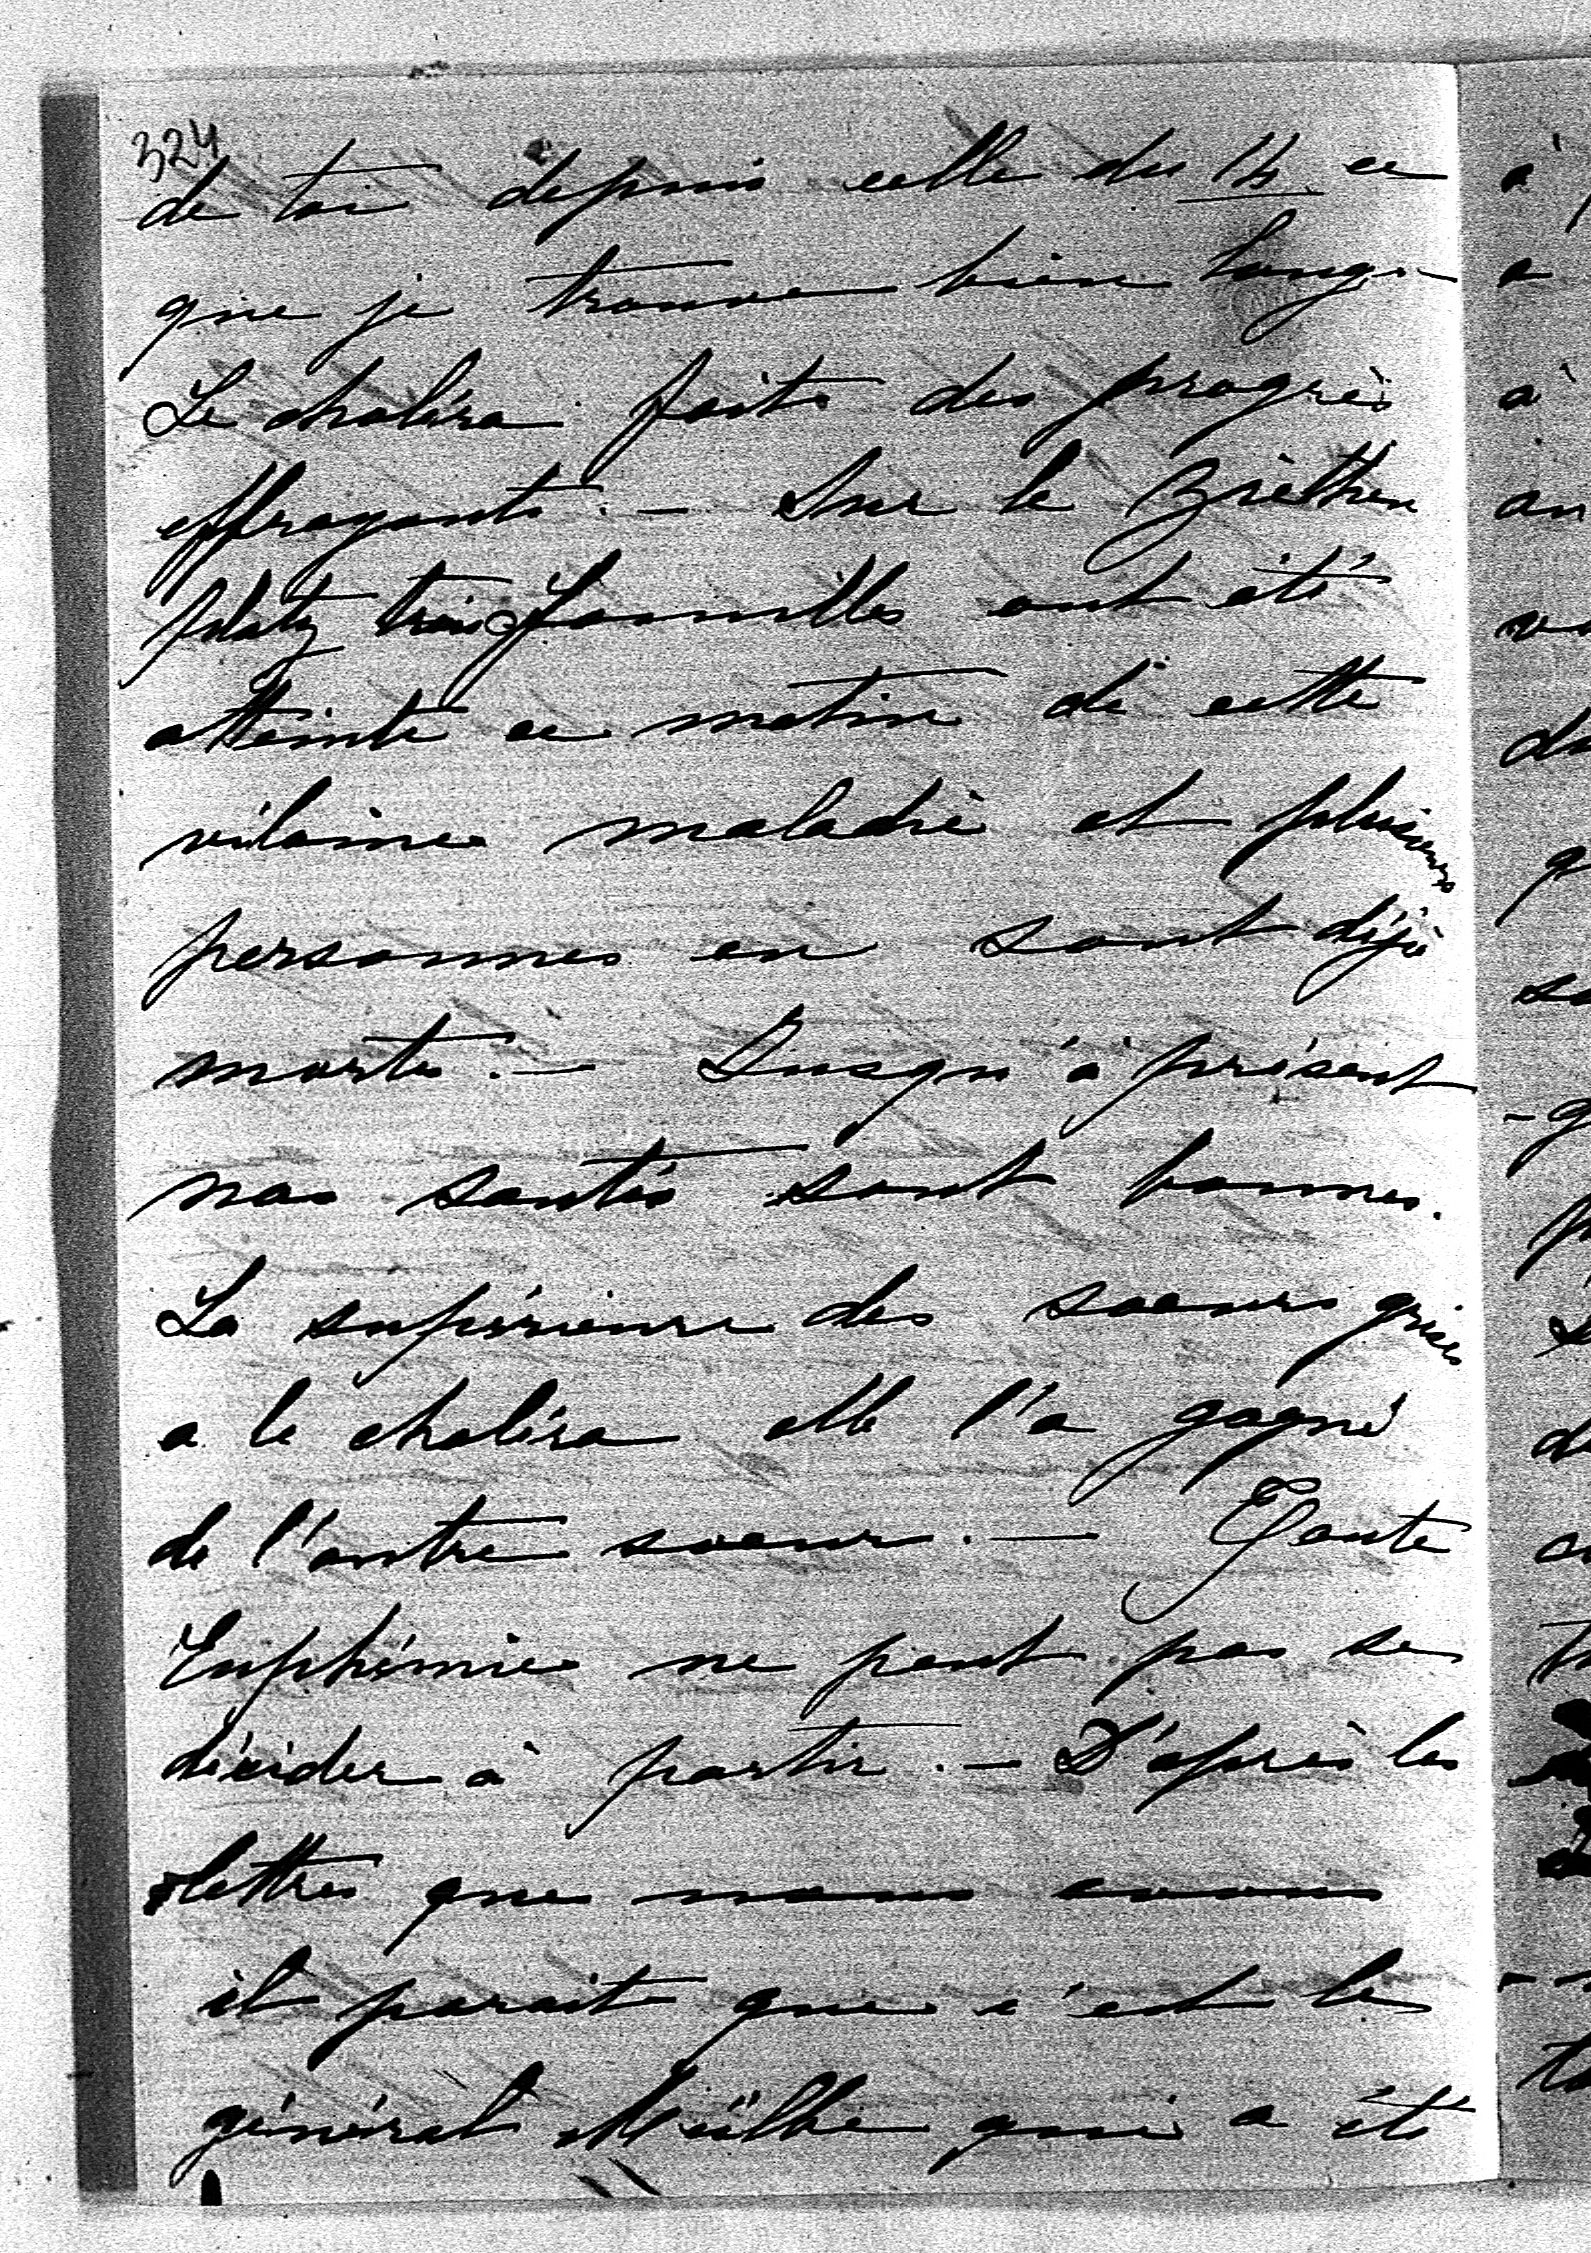 324
de toi depuis celle du 14 ce
que je trouve bien long. –
Le choléra fait des progrès
effrayants. – Sur le
platz trois familles ont été
atteinte ce matin de cette
vilaine maladie et plusieurs
personnes en sont déjà
morts. – Jusqu'à présent
nos santés sont bonnes.
La supérieure des soeurs grises
a le choléra elle l'a gagné
de l'autre soeur. – Tante
Euphémie ne peut pas se
décider à partir. – D'après les
lettres que nous avons
il parait que c'est le
général qui a été